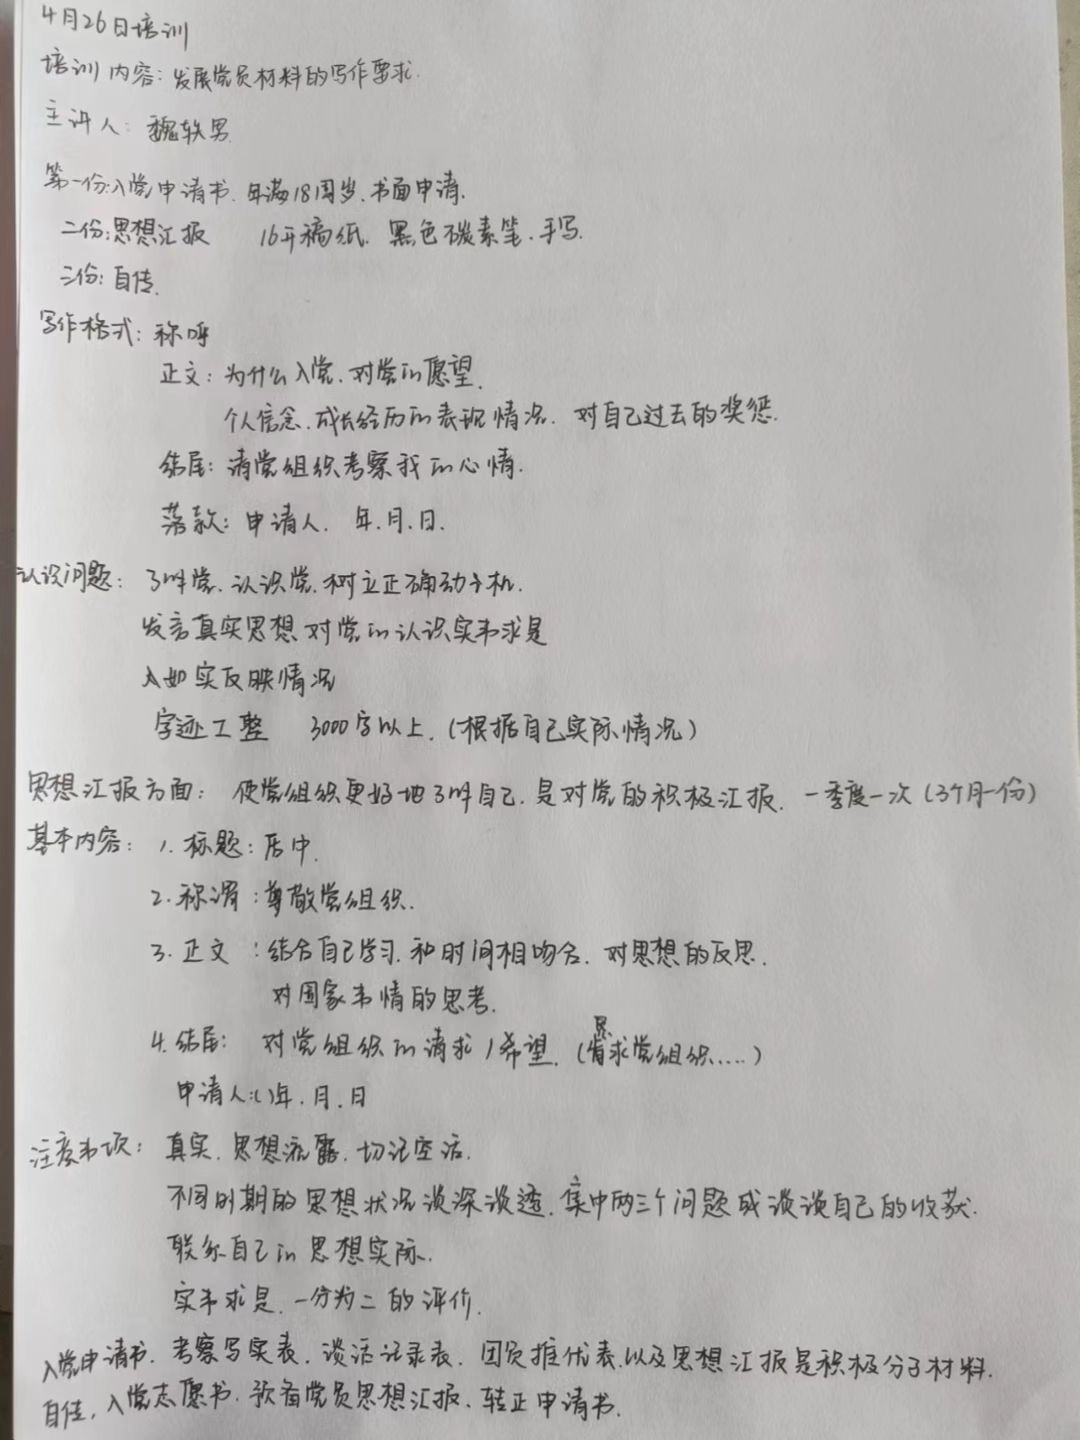 4月26日培训
培训内容：发展党员材料的写作要求.
主讲人：魏轶男.
第一份:入党申请书.年满18周岁.书面申请.
二份:思想汇报 16开稿纸.黑色碳素笔.手写.
三份:自传.
写作格式：称呼
正文：为什么入党.对党的愿望.
个人信念.成长经历的表现情况.对自己过去的奖惩.
结尾：请党组织考察我的心情.
落款：申请人. 年.月.日.
认识问题：了解党.认识党.树立正确动机.
发言真实思想对党的认识实事求是
如实反映情况
字迹工整 3000字以上.(根据自己实际情况)
思想汇报方面：使党组织更好地了解自己.是对党的积极汇报.一季度一次(3个月一份)
基本内容：1.标题：居中.
2.称谓：尊敬党组织.
3.正文：结合自己学习.和时间相吻合.对思想的反思.
对国家事情的思考.
4.结尾：对党组织的请求/希望.(恳求党组织.....)
申请人:()年.月.日
注意事项：真实.思想流露.切记空话.
不同时期的思想状况谈深谈透.集中两三个问题或谈谈自己的收获.
联系自己的思想实际.
实事求是.一分为二的评价.
入党申请书.考察写实表.谈话记录表.团员推优表.以及思想汇报是积极分子材料.
自传.入党志愿书.预备党员思想汇报.转正申请书.